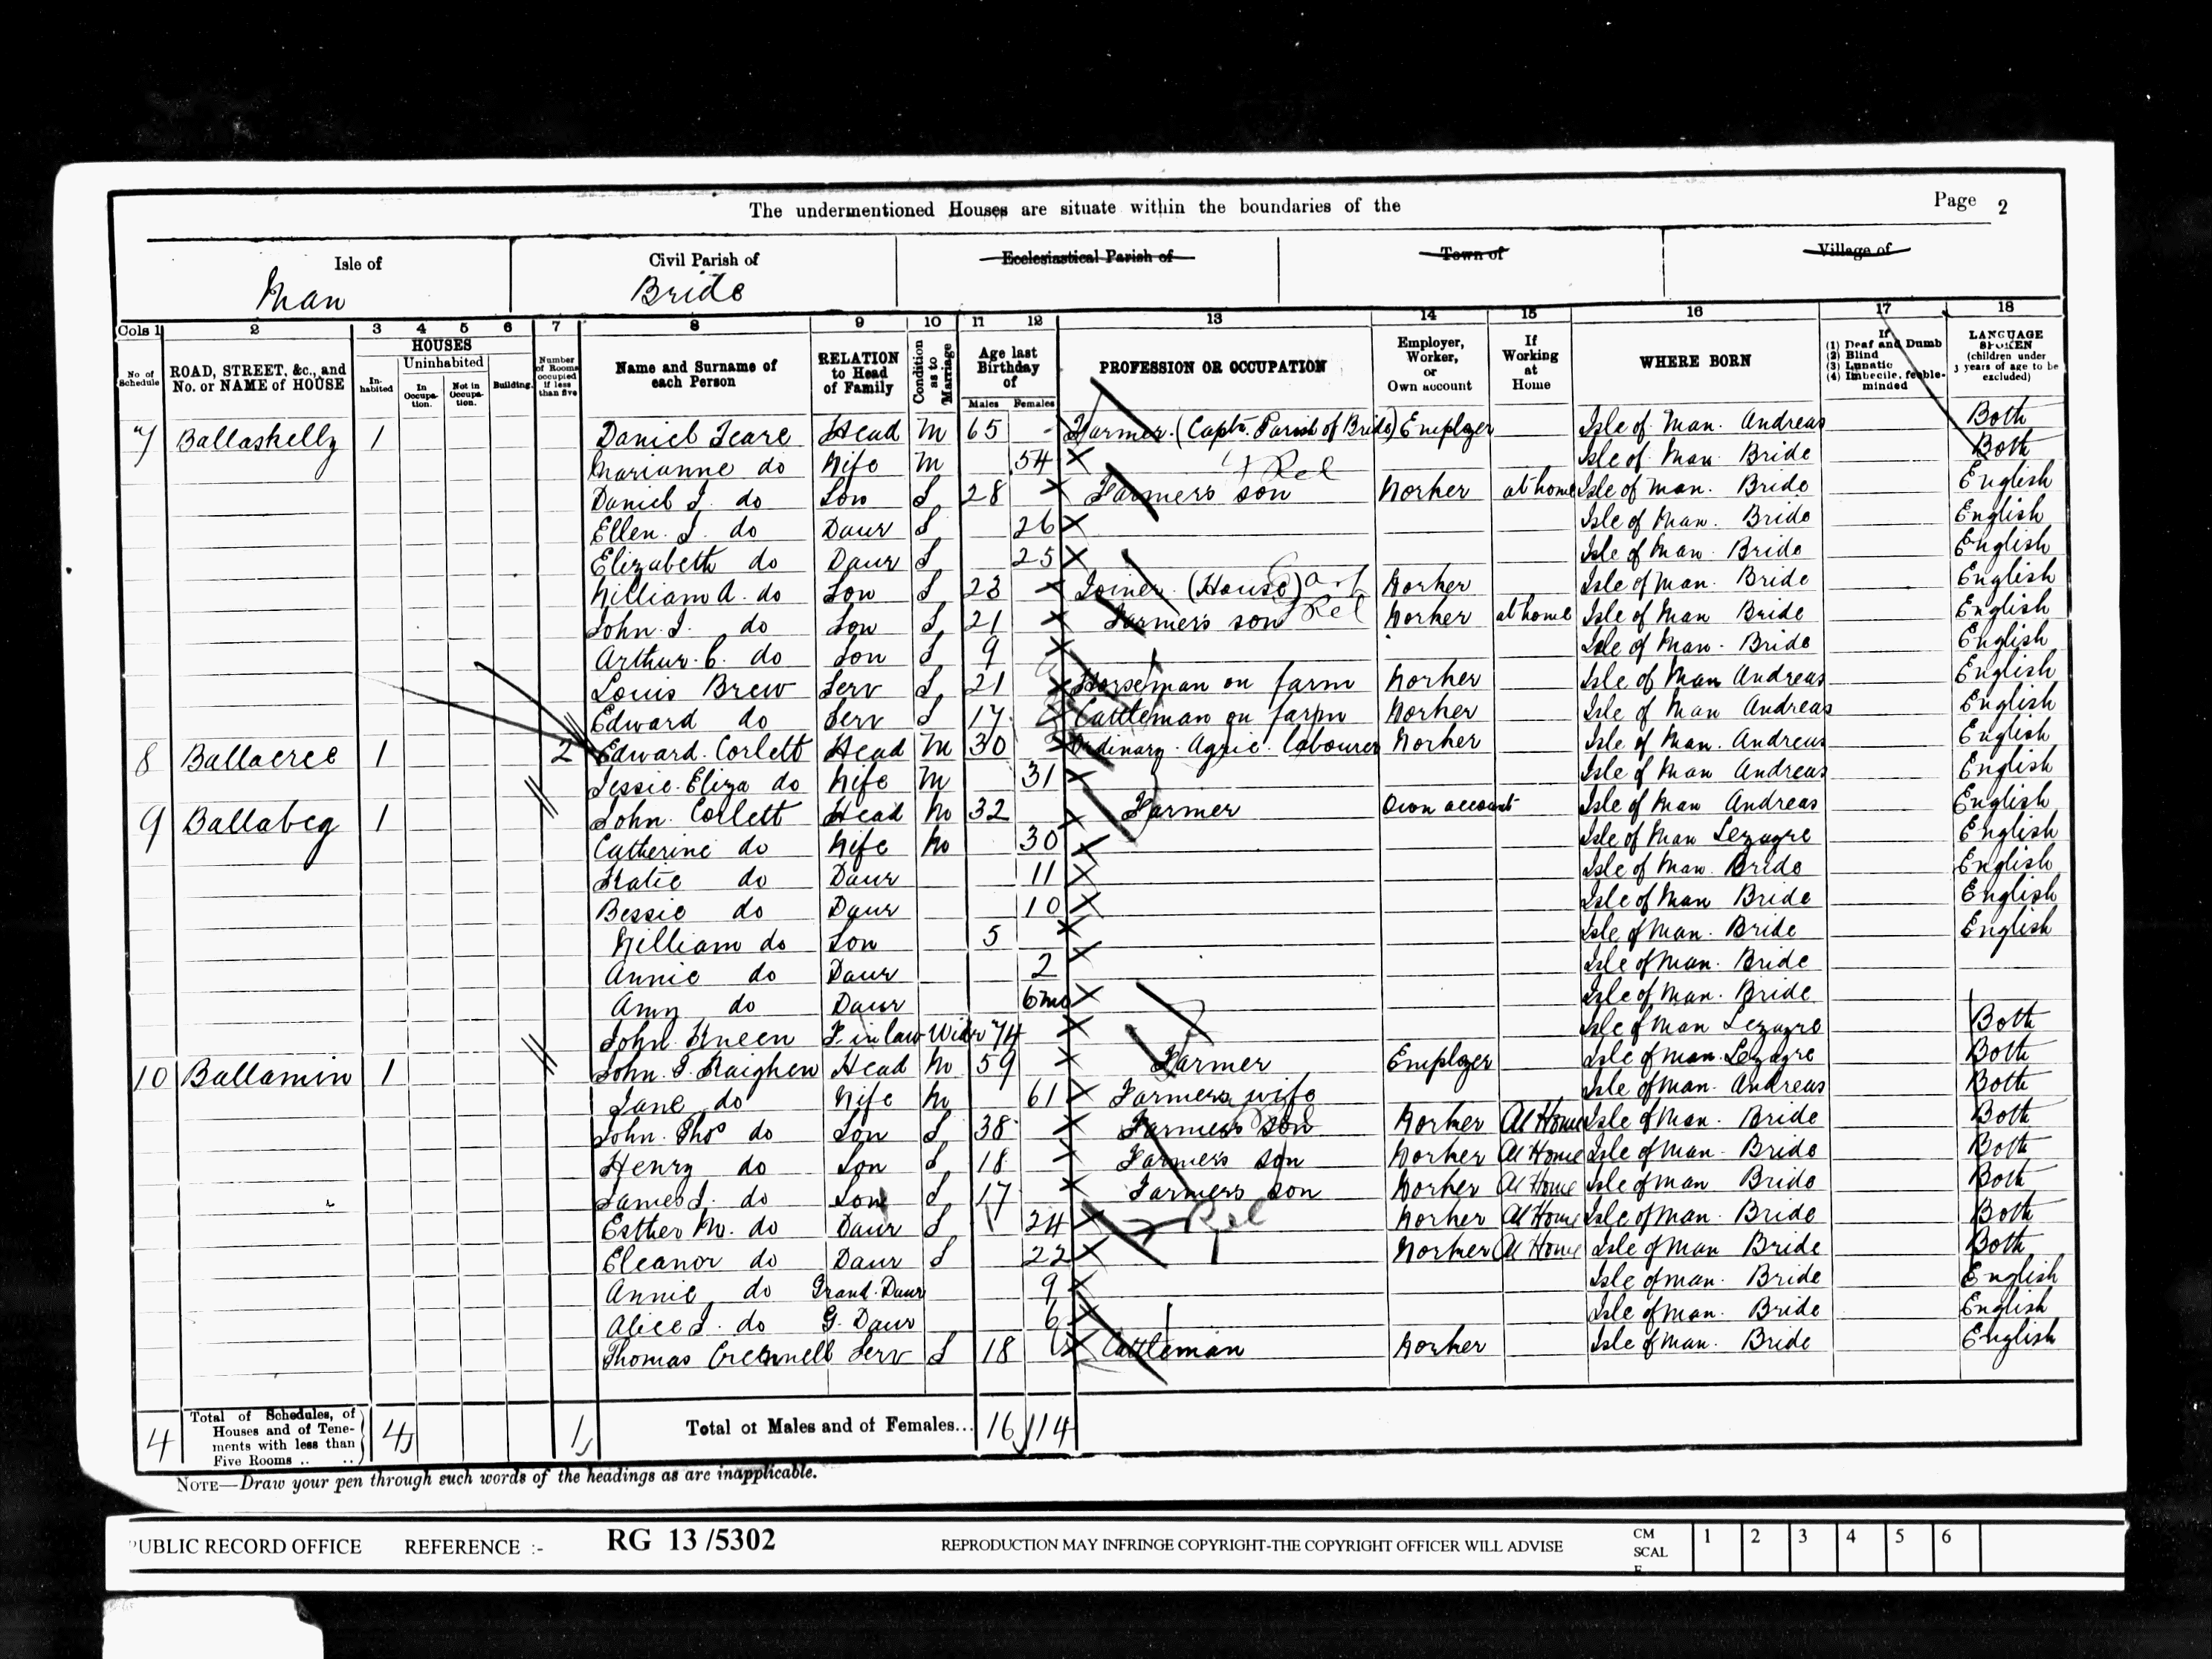 The undermentioned Houses are situate within the boundaries of the
Page 2
Isle of Man
Civil Parish of Bride
Ecclesiastical Parish of
Town of
Village of
Cols 1 2 3 4 5 6 7 8 9 10 11 12 13 14 15 16 17 18
No. of Schedule
ROAD, STREET, &c., and No. or NAME of HOUSE
HOUSES
In-habited
Uninhabited
In Occupa-tion.
Not in Occupa-tion.
Building.
Number of Rooms occupied if less than five
Name and Surname of each Person
RELATION to Head of Family
Condition as to Marriage
Age last Birthday of
Males Females
PROFESSION OR OCCUPATION
Employer, Worker, or Own account
If Working at Home
WHERE BORN
If
(1) Deaf and Dumb
(2) Blind
(3) Lunatic
(4) Imbecile, feeble-minded
LANGUAGE SPOKEN
(children under 3 years of age to be excluded)
7 Ballaskelly 1 Daniel Teare Head M 65 - Farmer. (Capt. Parish of Bride) Employer Isle of Man. Andreas Both
Marianne do Wife M 54 Isle of Man Bride Both
Daniel J. do Son S 28 Farmers son Rel Worker at home Isle of Man. Bride English
Ellen. J. do Daur S 26 Isle of Man. Bride English
Elizabeth do Daur S 25 Isle of Man. Bride English
William A. do Son S 23 Joiner (House) Worker Isle of Man. Bride English
John. J. do Son S 21 Farmers son Rel Worker at home Isle of Man Bride English
Arthur. C. do Son S 9 Isle of Man. Bride English
Louis Brew Serv S 21 Horseman on farm Worker Isle of Man Andreas English
Edward do Serv S 17 Cattleman on farm Worker Isle of Man Andreas English
8 Ballacree 1 2 Edward. Corlett Head M 30 Ordinary. Agric. labourer Worker Isle of Man. Andreas English
Jessie. Eliza do Wife M 31 Isle of Man Andreas English
9 Ballabeg 1 John. Corlett Head M 32 Farmer Own account Isle of Man Andreas English
Catherine do Wife M 30 Isle of Man Lezayre English
Katie do Daur 11 Isle of Man. Bride English
Bessie do Daur 10 Isle of Man Bride English
William do Son 5 Isle of Man. Bride English
Annie do Daur 2 Isle of Man. Bride
Amy do Daur 6mo Isle of Man. Bride
John. Kneen F in law Widr 74 Isle of Man Lezayre Both
10 Ballamin 1 John. J. Kaighen Head M 59 Farmer Employer Isle of Man. Lezayre Both
Jane do Wife M 61 Farmers wife Isle of Man. Andreas Both
John. Thos do Son S 38 Farmers son Worker At Home Isle of Man. Bride Both
Henry do Son S 18 Farmers son Worker At Home Isle of Man. Bride Both
James J. do Son S 17 Farmers son Worker At Home Isle of Man Bride Both
Esther M. do Daur S 24 Rel Worker At Home Isle of Man. Bride Both
Eleanor do Daur S 22 Worker At Home Isle of Man Bride Both
Annie do Grand. Daur 9 Isle of Man. Bride English
Alice J. do G. Daur 6 Isle of Man. Bride English
Thomas Serv S 18 Cattleman Worker Isle of Man. Bride English
4 Total of Schedules, of Houses and of Tene-ments with less than Five Rooms .. .. 4 1 Total of Males and of Females... 16 14
NOTE—Draw your pen through such words of the headings as are inapplicable.
PUBLIC RECORD OFFICE REFERENCE :- RG 13 /5302 REPRODUCTION MAY INFRINGE COPYRIGHT-THE COPYRIGHT OFFICER WILL ADVISE CM SCALE 1 2 3 4 5 6